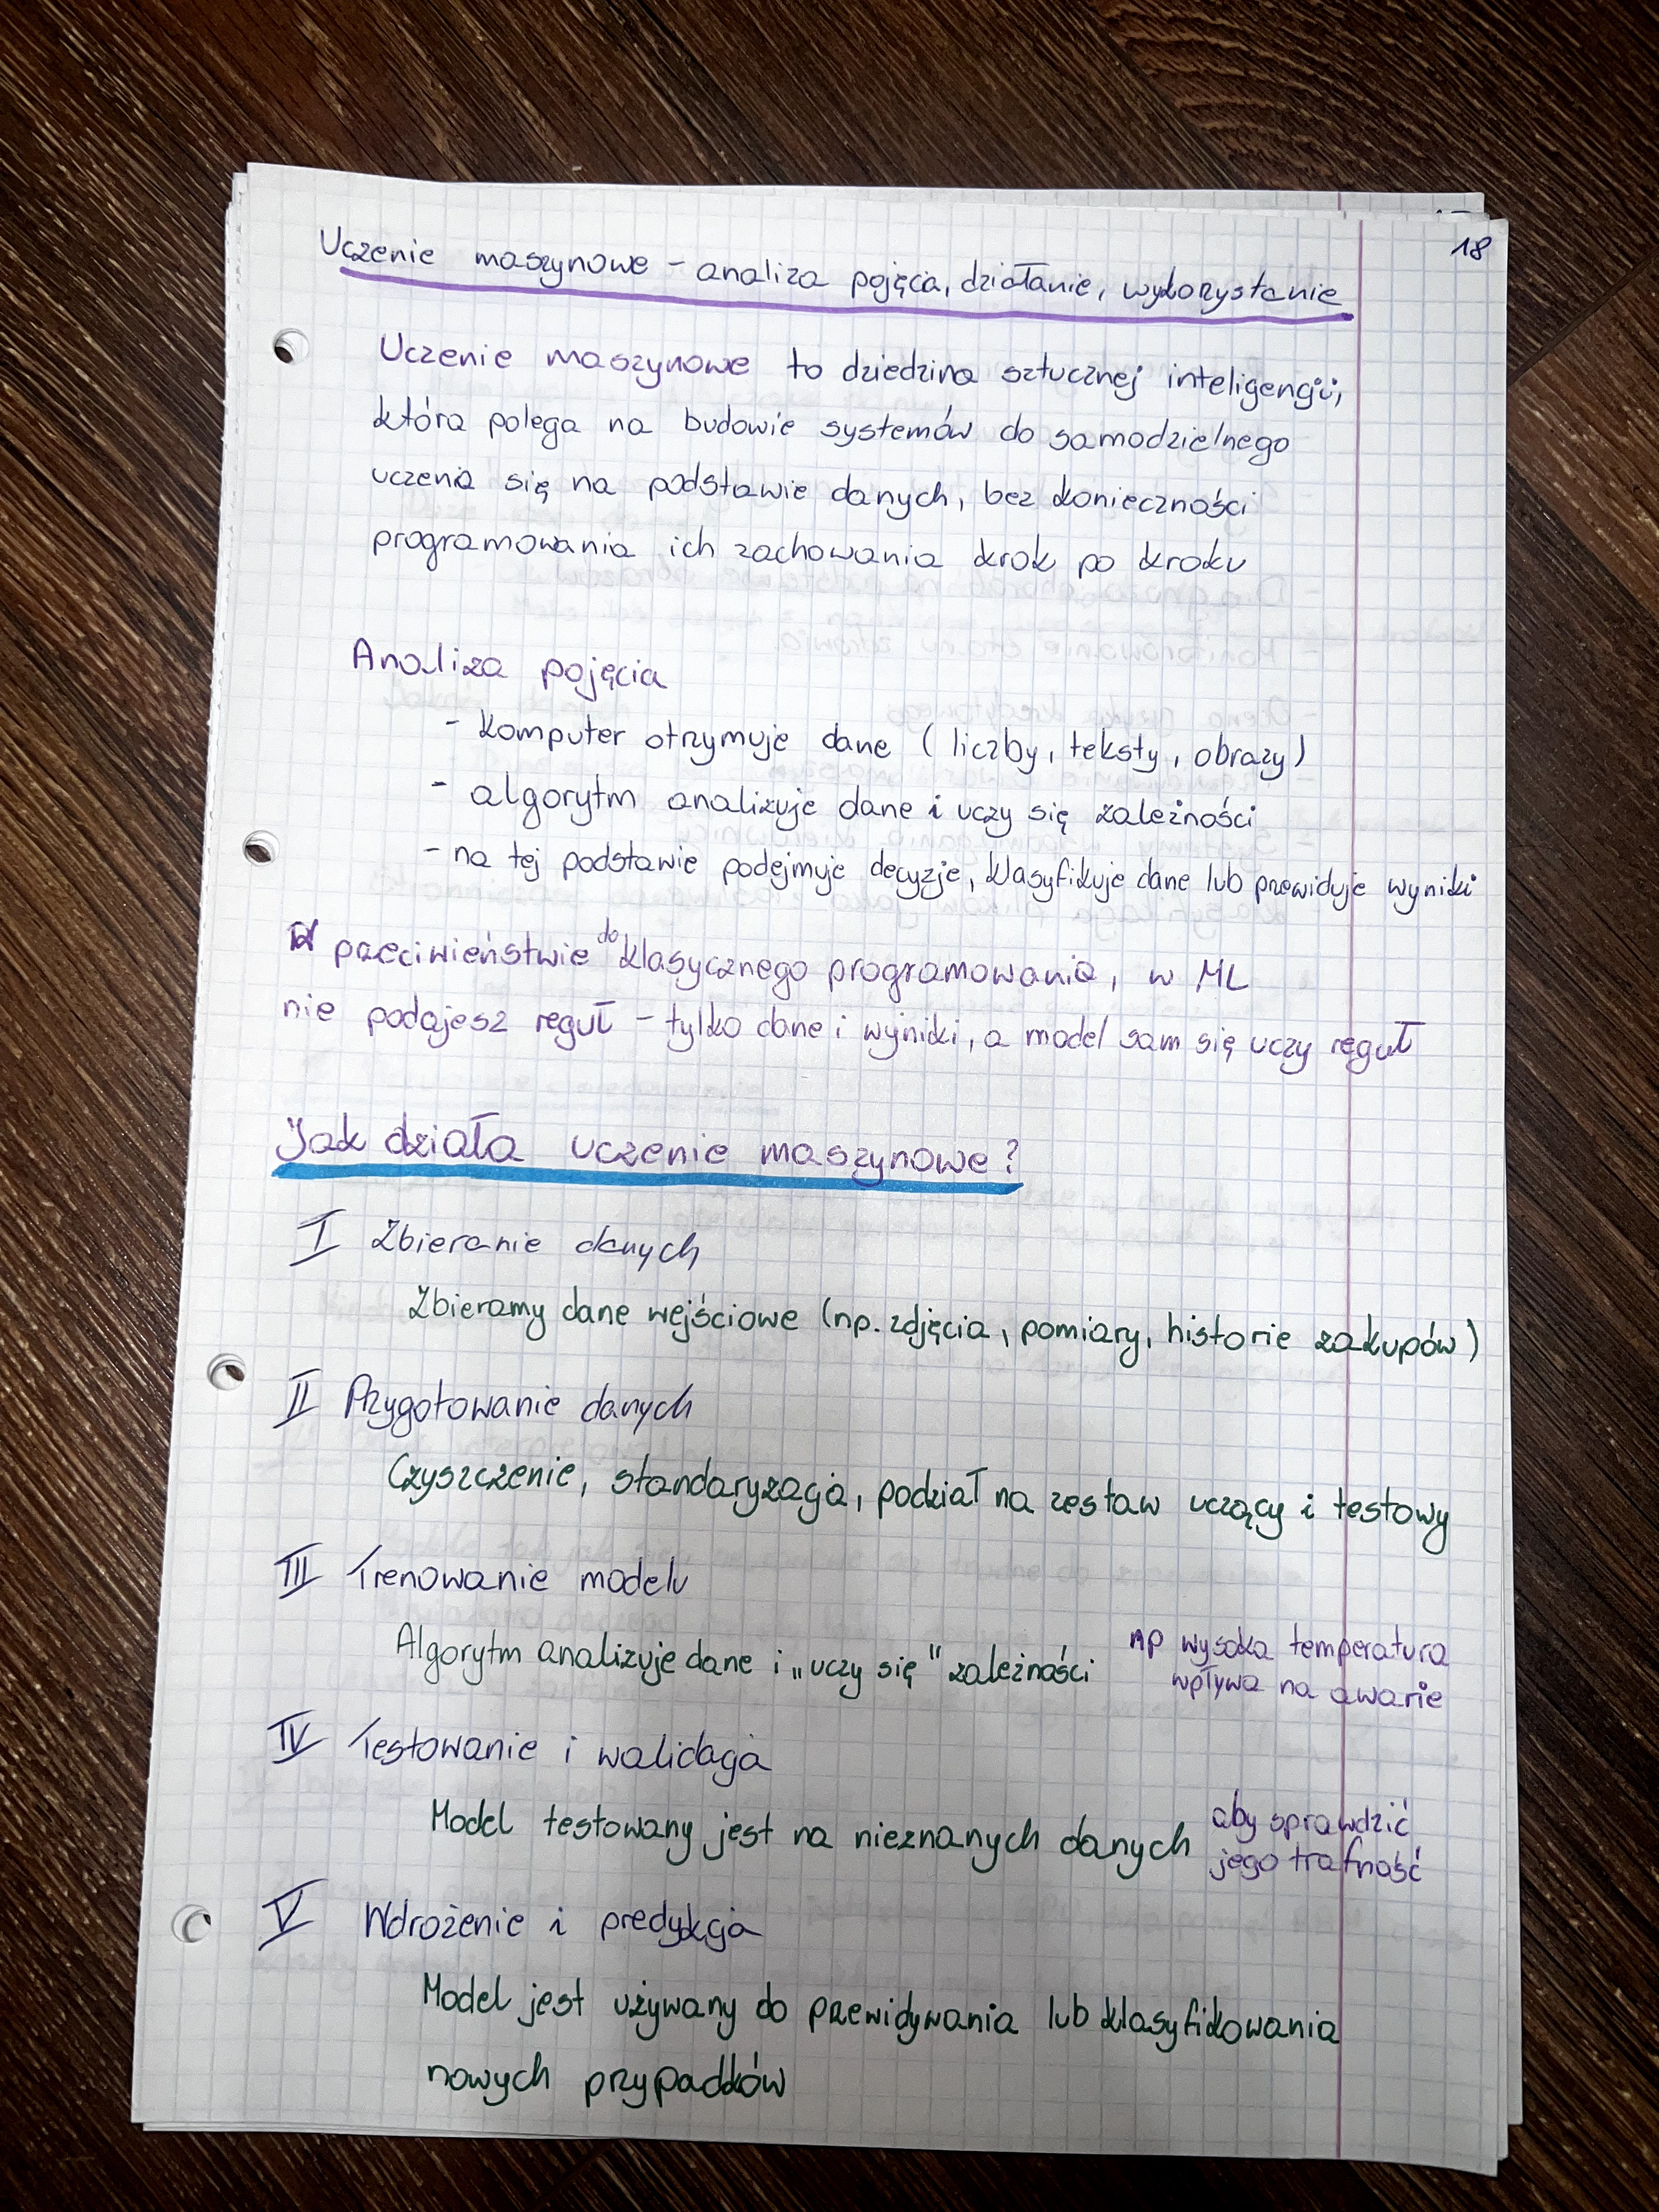 18
Uczenie maszynowe - analiza pojęcia, działanie, wykorzystanie
Uczenie maszynowe to dziedzina sztucznej inteligencji,
która polega na budowie systemów do samodzielnego
uczenia się na podstawie danych, bez konieczności
programowania ich zachowania krok po kroku
Analiza pojęcia
- komputer otrzymuje dane (liczby, teksty, obrazy)
- algorytm analizuje dane i uczy się zależności
- na tej podstawie podejmuje decyzje, klasyfikuje dane lub przewiduje wyniki
W przeciwieństwie do klasycznego programowania, w ML
nie podajesz reguł - tylko dane i wyniki, a model sam się uczy reguł
Jak działa uczenie maszynowe?
I Zbieranie danych
Zbieramy dane wejściowe (np. zdjęcia, pomiary, historie zakupów)
II Przygotowanie danych
Czyszczenie, standaryzacja, podział na zestaw uczący i testowy
III Trenowanie modelu
Algorytm analizuje dane i „uczy się" zależności np wysoka temperatura
wpływa na awarie
IV Testowanie i walidacja
Model testowany jest na nieznanych danych aby sprawdzić
jego trafność
V Wdrożenie i predykcja
Model jest używany do przewidywania lub klasyfikowania
nowych przypadków